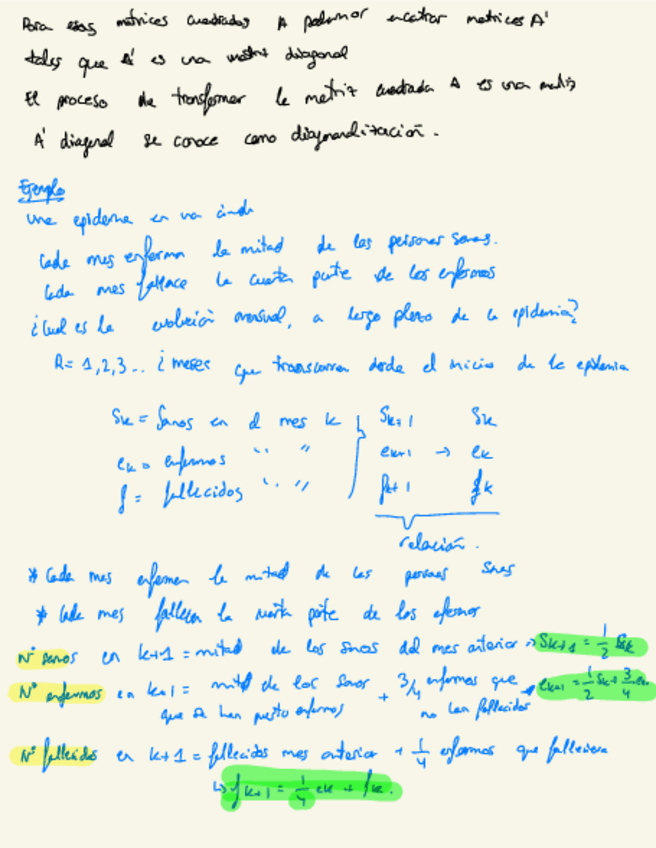 Para esas matrices cuadradas A podemos encontrar matrices A'
tales que A' es una matriz diagonal
El proceso de transformar la matriz cuadrada A es una matriz
A' diagonal se conoce como diagonalización.
Ejemplo
Una epidemia en una ciudad
Cada mes enferma la mitad de las personas sanas.
Cada mes fallece la cuarta parte de los enfermos
¿Cual es la evolución mensual, a largo plazo de la epidemia?
R = 1,2,3... ¿ meses que transcurren desde el inicio de la epidemia
Sk = Sanos en el mes k } Sk+1 Sk
ek = enfermos " " ek+1 → ek
f = fallecidos " " fk+1 fk
relación.
* Cada mes enferman la mitad de las personas sanas
* Cada mes fallecen la cuarta parte de los enfermos
Nº sanos en k+1 = mitad de los sanos del mes anterior → Sk+1 = 1/2 Sk
Nº enfermos en k+1 = mitad de los sanos + 3/4 enfermos que → ek+1 = 1/2 Sk + 3/4 ek
que se han puesto enfermos no han fallecidos
Nº fallecidos en k+1 = fallecidos mes anterior + 1/4 enfermos que fallecieron
↳ fk+1 = 1/4 ek + fk.